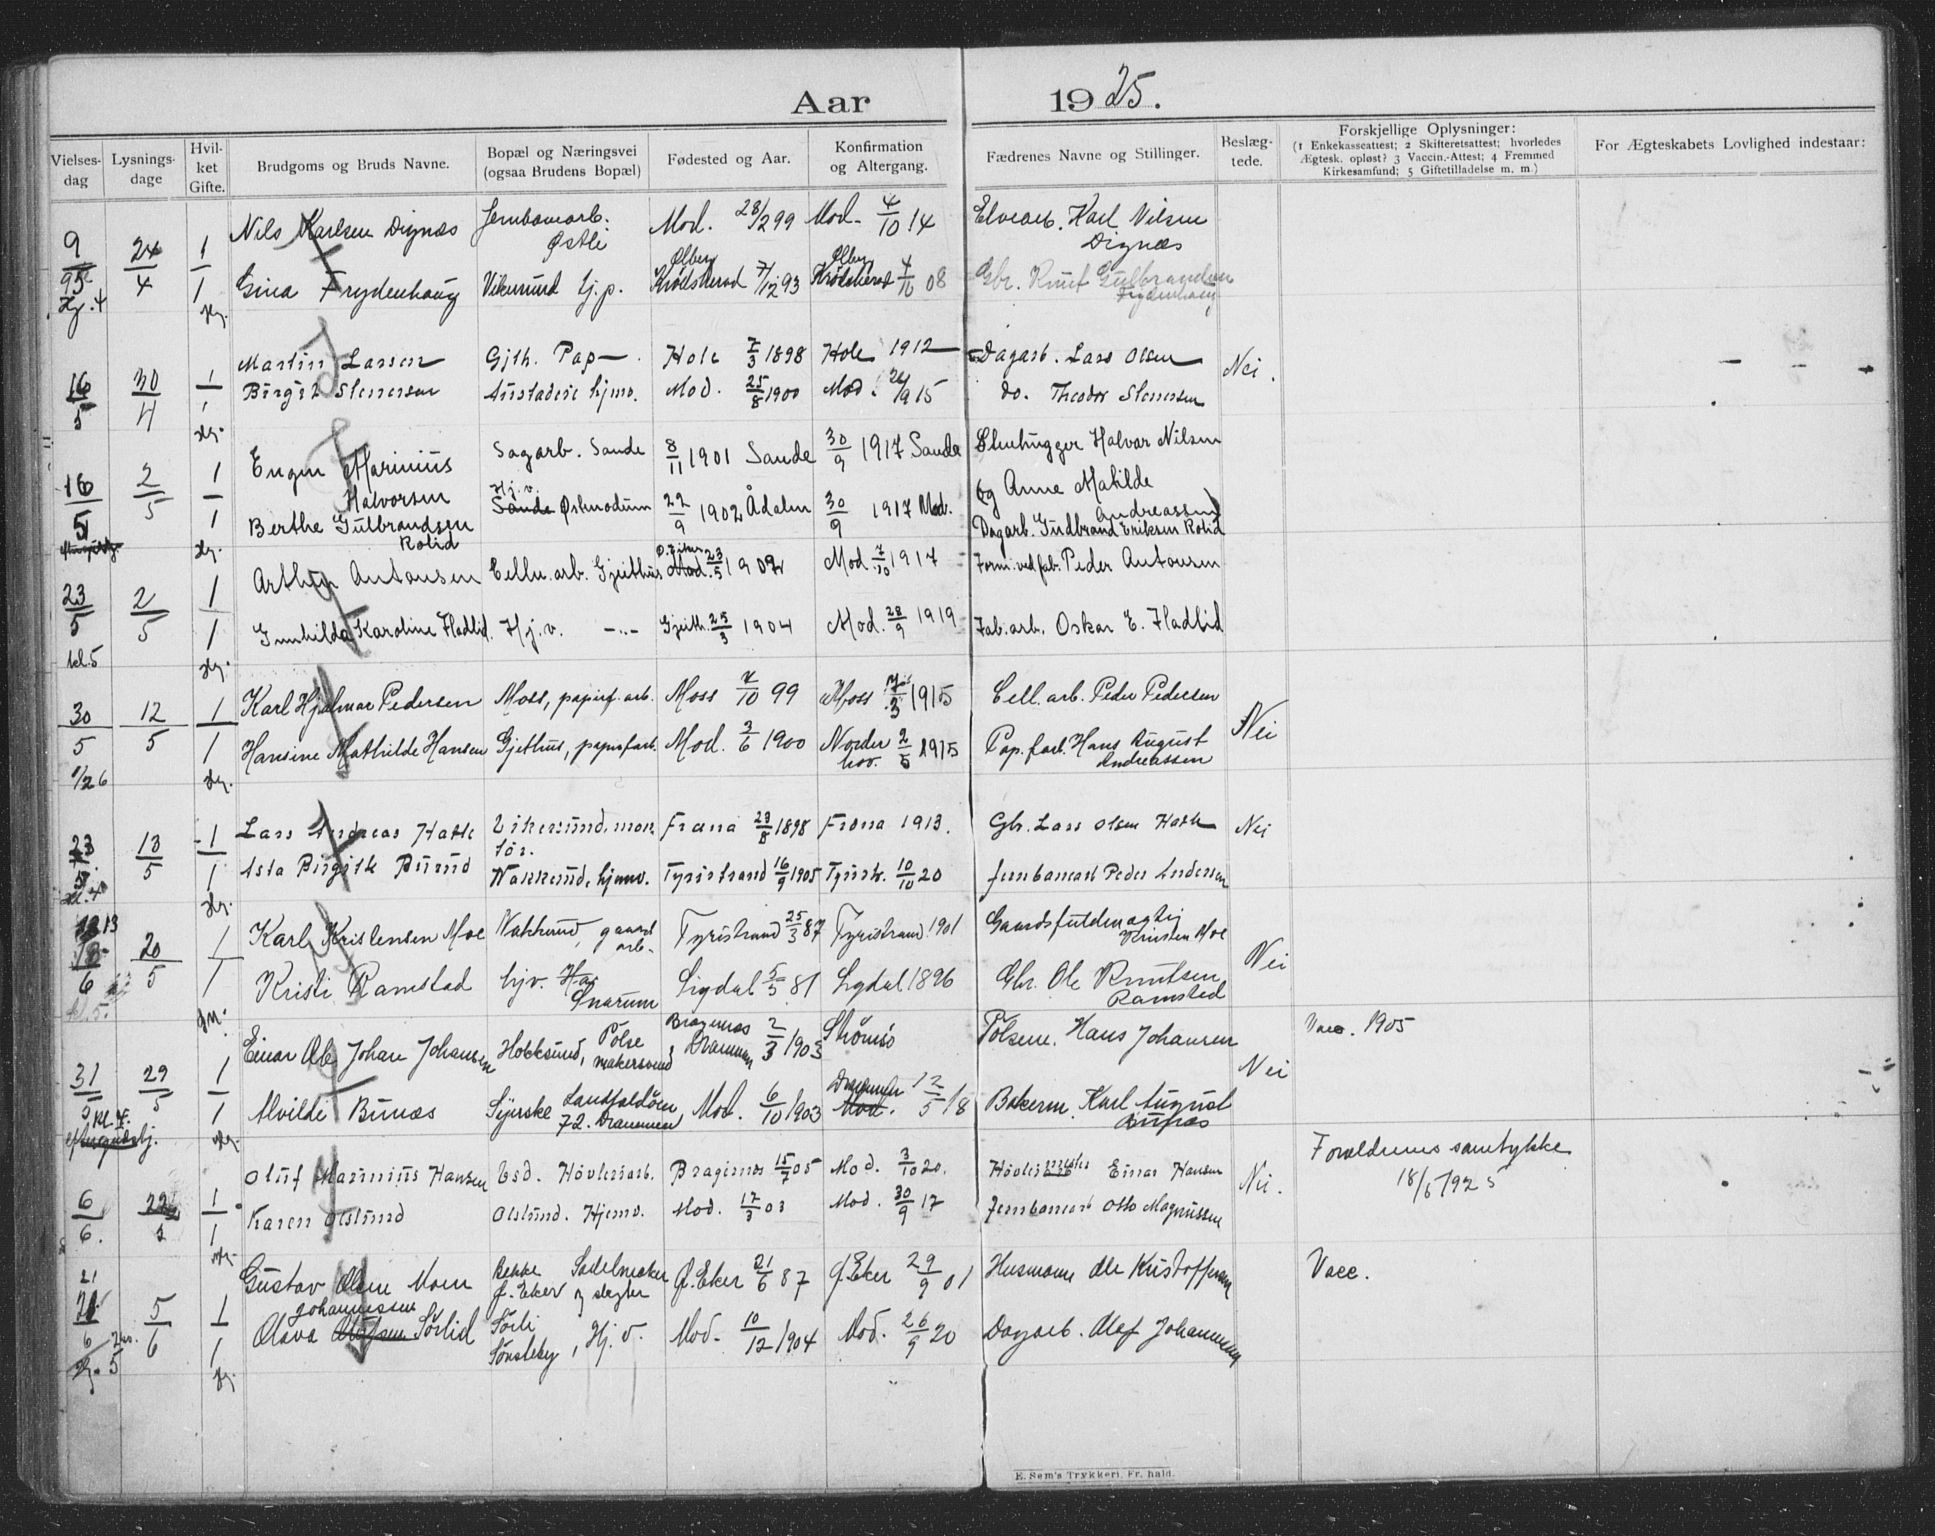 Aar 1925.
Vielses-dag
Lysnings-dage
Hvil-ket Gifte.
Brudgoms og Bruds Navne.
Bopæl og Næringsvei (ogsaa Brudens Bopæl)
Fødested og Aar.
Konfirmation og Altergang.
Fædrenes Navne og Stillinger.
Beslæg-tede.
Forskjellige Oplysninger:
(1 Enkekasseattest; 2 Skifteretsattest; hvorledes Ægtesk. opløst? 3 Vaccin.-Attest; 4 Fremmed Kirkesamfund; 5 Giftetilladelse m. m.)
For Ægteskabets Lovlighed indestaar:
9/5 24/4 1 Nils Karlsen Dignæs Jernbanearb. Østli Mod. 28/2 99 Mod. 4/10 14 Elvearb. Karl Nilsen Dignæs
1 Gina Frydenhaug Vikersund hj.p. Olberg Krødsherad 7/12 93 Olberg Krødsherad 4/10 08 Gbr. Knut Gulbrandsen Frydenhaug
16/5 30/4 1 Martin Larsen Gjth. Pap Hole 7/3 1898 Hole 1912 Dagarb. Lars Olsen Nei.
1 Birgit Stenersen hjmv. Mod. 25/8 1900 Mod. 26/9 15 do. Theodor Stenersen
16/5 2/5 1 Eugen Marinius Halvorsen Sagarb. Sande 8/11 1901 Sande 30/9 1917 Sande Stenhugger Halvar Nilsen og Anne Matilde Andreassen
1 Berthe Gulbrandsen Rolid Hj.v. Sande Østmodum 22/9 1902 Ådalen 30/9 1917 Mod. Dagarb. Gudbrand Eriksen Rolid
23/5 2/5 1 Arthur Antonsen Cellu.arb. Gjeithus Mod. 23/5 1902 Mod. 7/10 1917 Form. ved fab. Peder Antonsen
kl.5 1 Gunhilda Karoline Hadlid Hj.v. -"- Gjeith. 25/3 1904 Mod. 28/9 1919 Fab.arb. Oskar E. Hadlid
30/5 12/5 1 Karl Hjalmar Pedersen Moss, papirf.arb. Moss 7/10 99 Moss 7/3 1915 Cell.arb. Peder Pedersen Nei
1/26 1 Hansine Mathilde Hansen Gjethus, papirfarb. Mod. 3/6 1900 Norderhov. 2/5 1915 Pap.farb. Hans August Andreassen
23/5 13/5 1 Lars Andreas Hatle Vikersund, montør. Fræna 23/8 1898 Fræna 1913. Gbr. Lars Olsen Hatle Nei
1 Asta Birgitte Burud Nakkerud, hjmv. Tyristrand 16/9 1905 Tyristr. 10/10 20 Jernbanearb Peder Andersen
13/6 20/5 1 Karl Kristensen Moe Nakkerud, gaardarb. Tyristrand 25/3 87 Tyristrand 1901 Gaardsfuldmægtig Kristen Moe Nei
kl.5. 1 Kristi Ramstad hjv. Snarum Sigdal 5/5 81 Sigdal 1896 Gbr. Ole Knutsen Ramstad
31/5 29/5 1 Einar Ole Johan Johansen Hokksund, Pølsemakersvend Bragernes, Drammen 2/3 1903 Strømsø Pølsem. Hans Johansen Nei Vacc. 1905
kl. 4. 1 Alvilde Bunæs Syerske Landfaldøen 72. Drammen Mod. 6/10 1903 Drammen Mod. 12/5 18 Bakerm. Karl August Bunæs
6/6. 22/5 1 Oluf Marinius Hansen Esd. Høvleriarb. Bragernes 15/7 05 Mod. 3/10 20. Høvlerimester Einar Hansen Nei. Forældrenes samtykke 18/5 1925
1 Karen Olslund Olslund. Hjemv. Mod. 17/3 03 Mod. 30/9 17 Jernbanearb Otto Magnussen
21/6 5/6 1 Gustav Olsen Moen Bekke Ø. Eker Sadelmaker og slagter Ø. Eker 21/6 87 Ø. Eker 29/9 01 Husmann Ole Kristoffersen Vacc.
1 Olava Johannessen Olafsen Sørlid Sørli Sønsteby, Hj.v. Mod. 10/12 1904 Mod. 26/9 20 Dagarb. Olaf Johannessen
E. Sem's Trykkeri, Fr. hald.